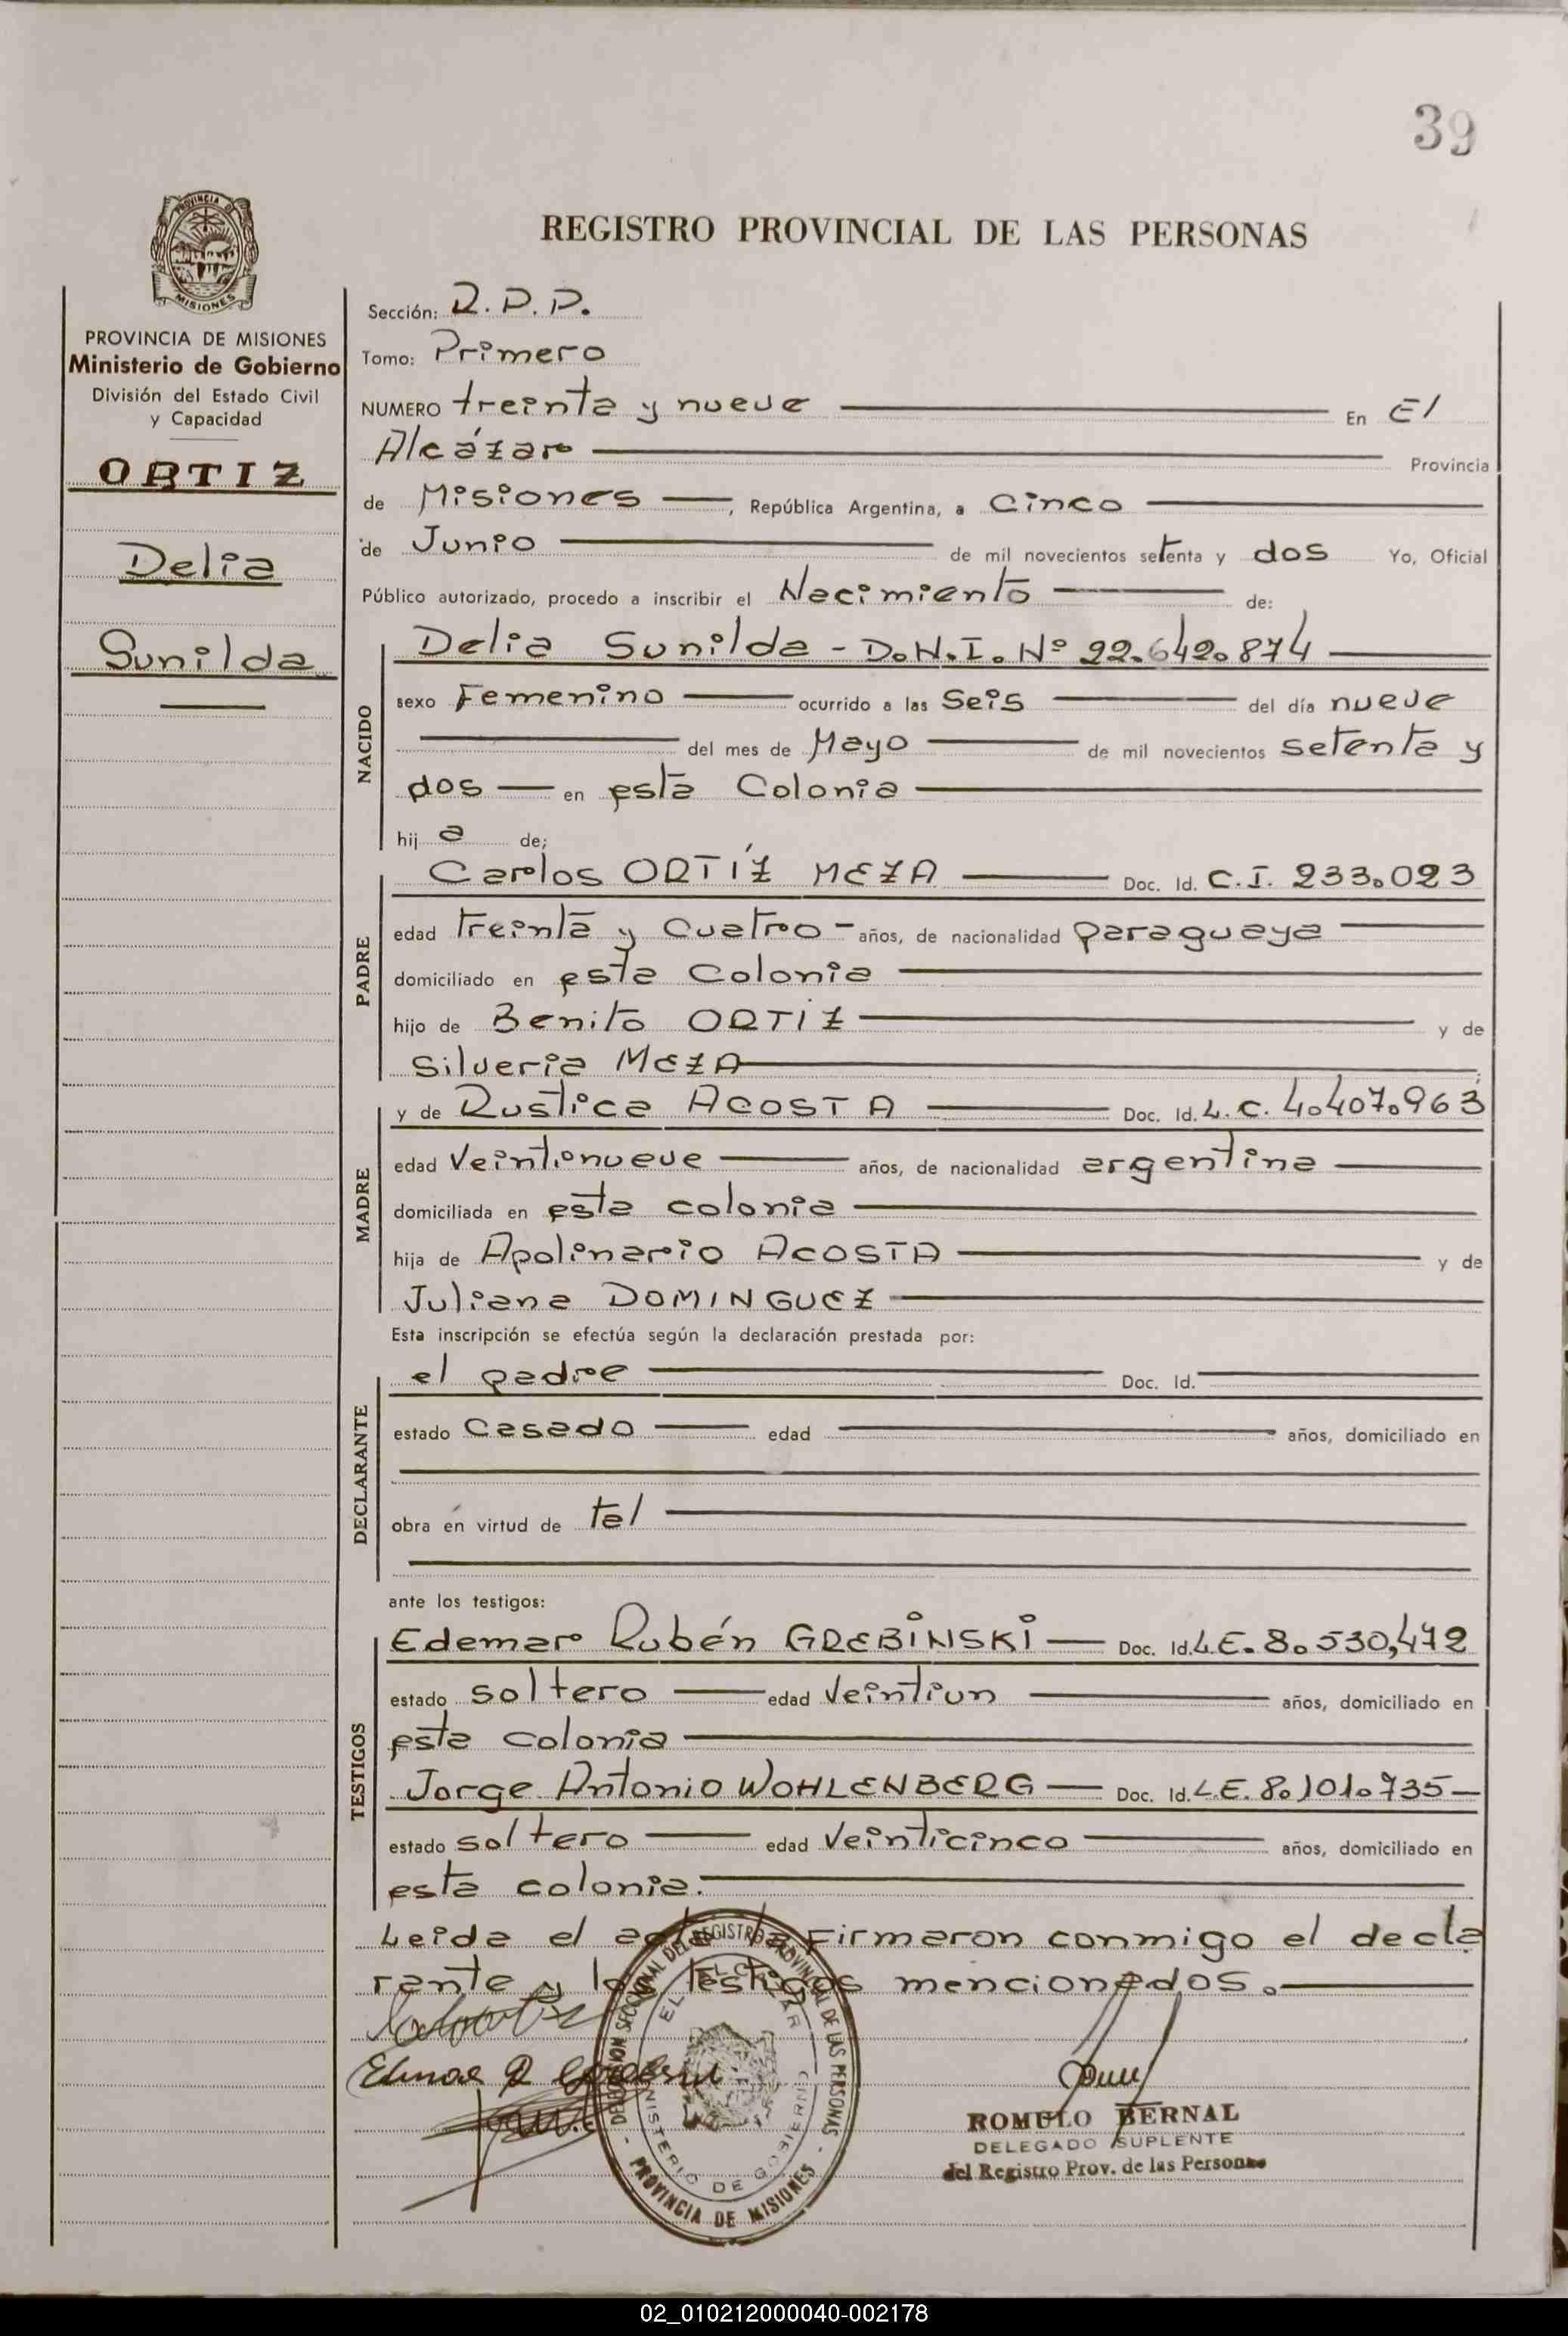 39
PROVINCIA DE
MISIONES
PROVINCIA DE MISIONES
Ministerio de Gobierno
División del Estado Civil
y Capacidad
ORTIZ
Delia
Sunilda
REGISTRO PROVINCIAL DE LAS PERSONAS
Sección: R.P.P.
Tomo: Primero
NUMERO treinta y nueve En El
Alcázar Provincia
de Misiones, República Argentina, a Cinco
de Junio de mil novecientos setenta y dos Yo, Oficial
Público autorizado, procedo a inscribir el Nacimiento de:
NACIDO
Delia Sunilda - D.N.I. Nº 22.642.874
sexo Femenino ocurrido a las Seis del día nueve
del mes de Mayo de mil novecientos setenta y
dos en esta Colonia
hij a de;
PADRE
Carlos ORTÍZ MEZA Doc. Id. C.I. 233.023
edad treinta y cuatro - años, de nacionalidad paraguaya
domiciliado en esta Colonia
hijo de Benito ORTIZ y de
Silveria MEZA
MADRE
y de Rustica ACOSTA Doc. Id. L.C. 4.407.963
edad Veintinueve años, de nacionalidad argentina
domiciliada en esta colonia
hija de Apolinario ACOSTA y de
Juliana DOMINGUEZ
Esta inscripción se efectúa según la declaración prestada por:
DECLARANTE
el padre Doc. Id.
estado Casado edad años, domiciliado en
obra en virtud de tal
ante los testigos:
TESTIGOS
Edemar Rubén GREBINSKI Doc. Id. L.E. 8.530,472
estado soltero edad Veintiun años, domiciliado en
esta colonia
Jorge Antonio WOHLENBERG Doc. Id. L.E. 8.101.735
estado soltero edad Veinticinco años, domiciliado en
esta colonia.
Leida el acta la Firmaron conmigo el decla
rante y los testigos mencionados.
DELEGACION SECCIONAL DEL REGISTRO PROVINCIAL DE LAS PERSONAS
EL ALCAZAR
MINISTERIO DE GOBIERNO
PROVINCIA DE MISIONES
ROMULO BERNAL
DELEGADO SUPLENTE
del Registro Prov. de las Personas
02_010212000040-002178